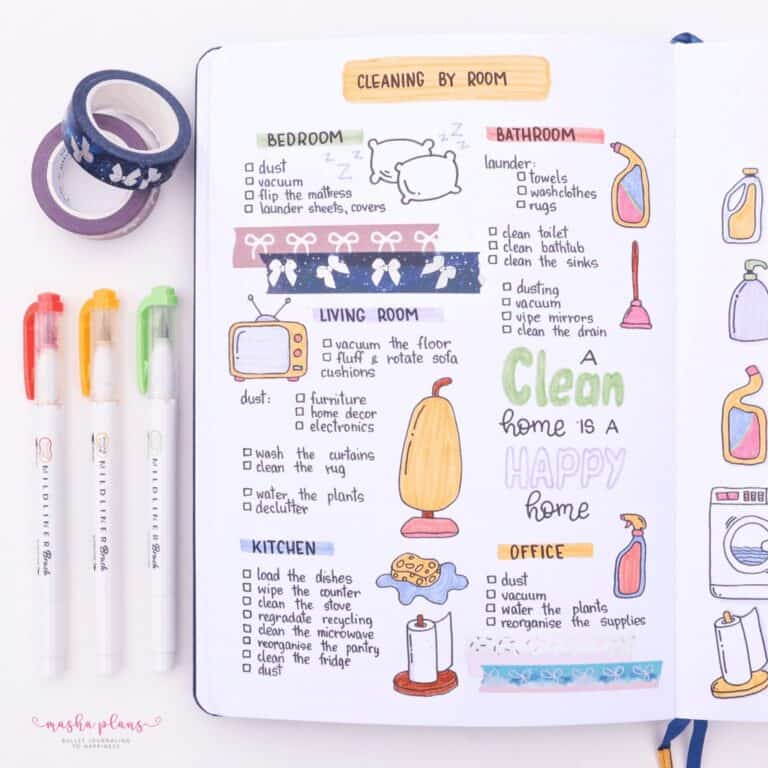 CLEANING BY ROOM
BEDROOM
dust
vacuum
flip the mattress
launder sheets, covers
z z z
z z z
LIVING ROOM
vacuum the floor
fluff & rotate sofa
cushions
dust:
furniture
home decor
electronics
wash the curtains
clean the rug
water the plants
declutter
KITCHEN
load the dishes
wipe the counter
clean the stove
regradate recycling
clean the microwave
reorganise the pantry
clean the fridge
dust
BATHROOM
launder:
towels
washclothes
rugs
clean toilet
clean bathtub
clean the sinks
dusting
vacuum
vipe mirrors
clean the drain
A
Clean
home IS A
HAPPY
home
OFFICE
dust
vacuum
water the plants
reorganise the supplies
MILDLINER Brush
MILDLINER Brush
MILDLINER Brush
masha plans
BULLET JOURNALING
TO HAPPINESS